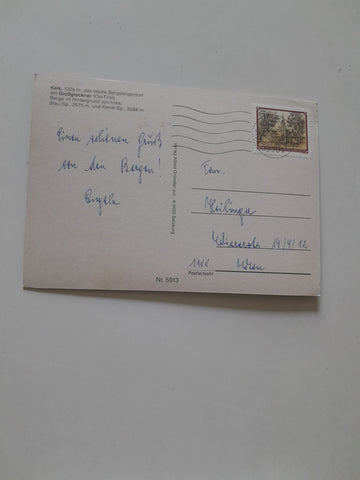 Kals, 1325 m, das ideale Bergsteigerdorf
am Großglockner (Ost-Tirol)
Berge im Hintergrund von links:
Blau-Sp., 2575 m, und Kendl-Sp., 3088 m
Einen schönen Gruß
von den Bergen!
Angela
Verlag Alfred Gründler
A-5020 Salzburg
Nr. 5913
Fam.
14/4/12
Wien
Postleitzahl